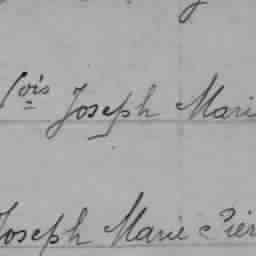 Joseph Marie
Joseph Marie Pier